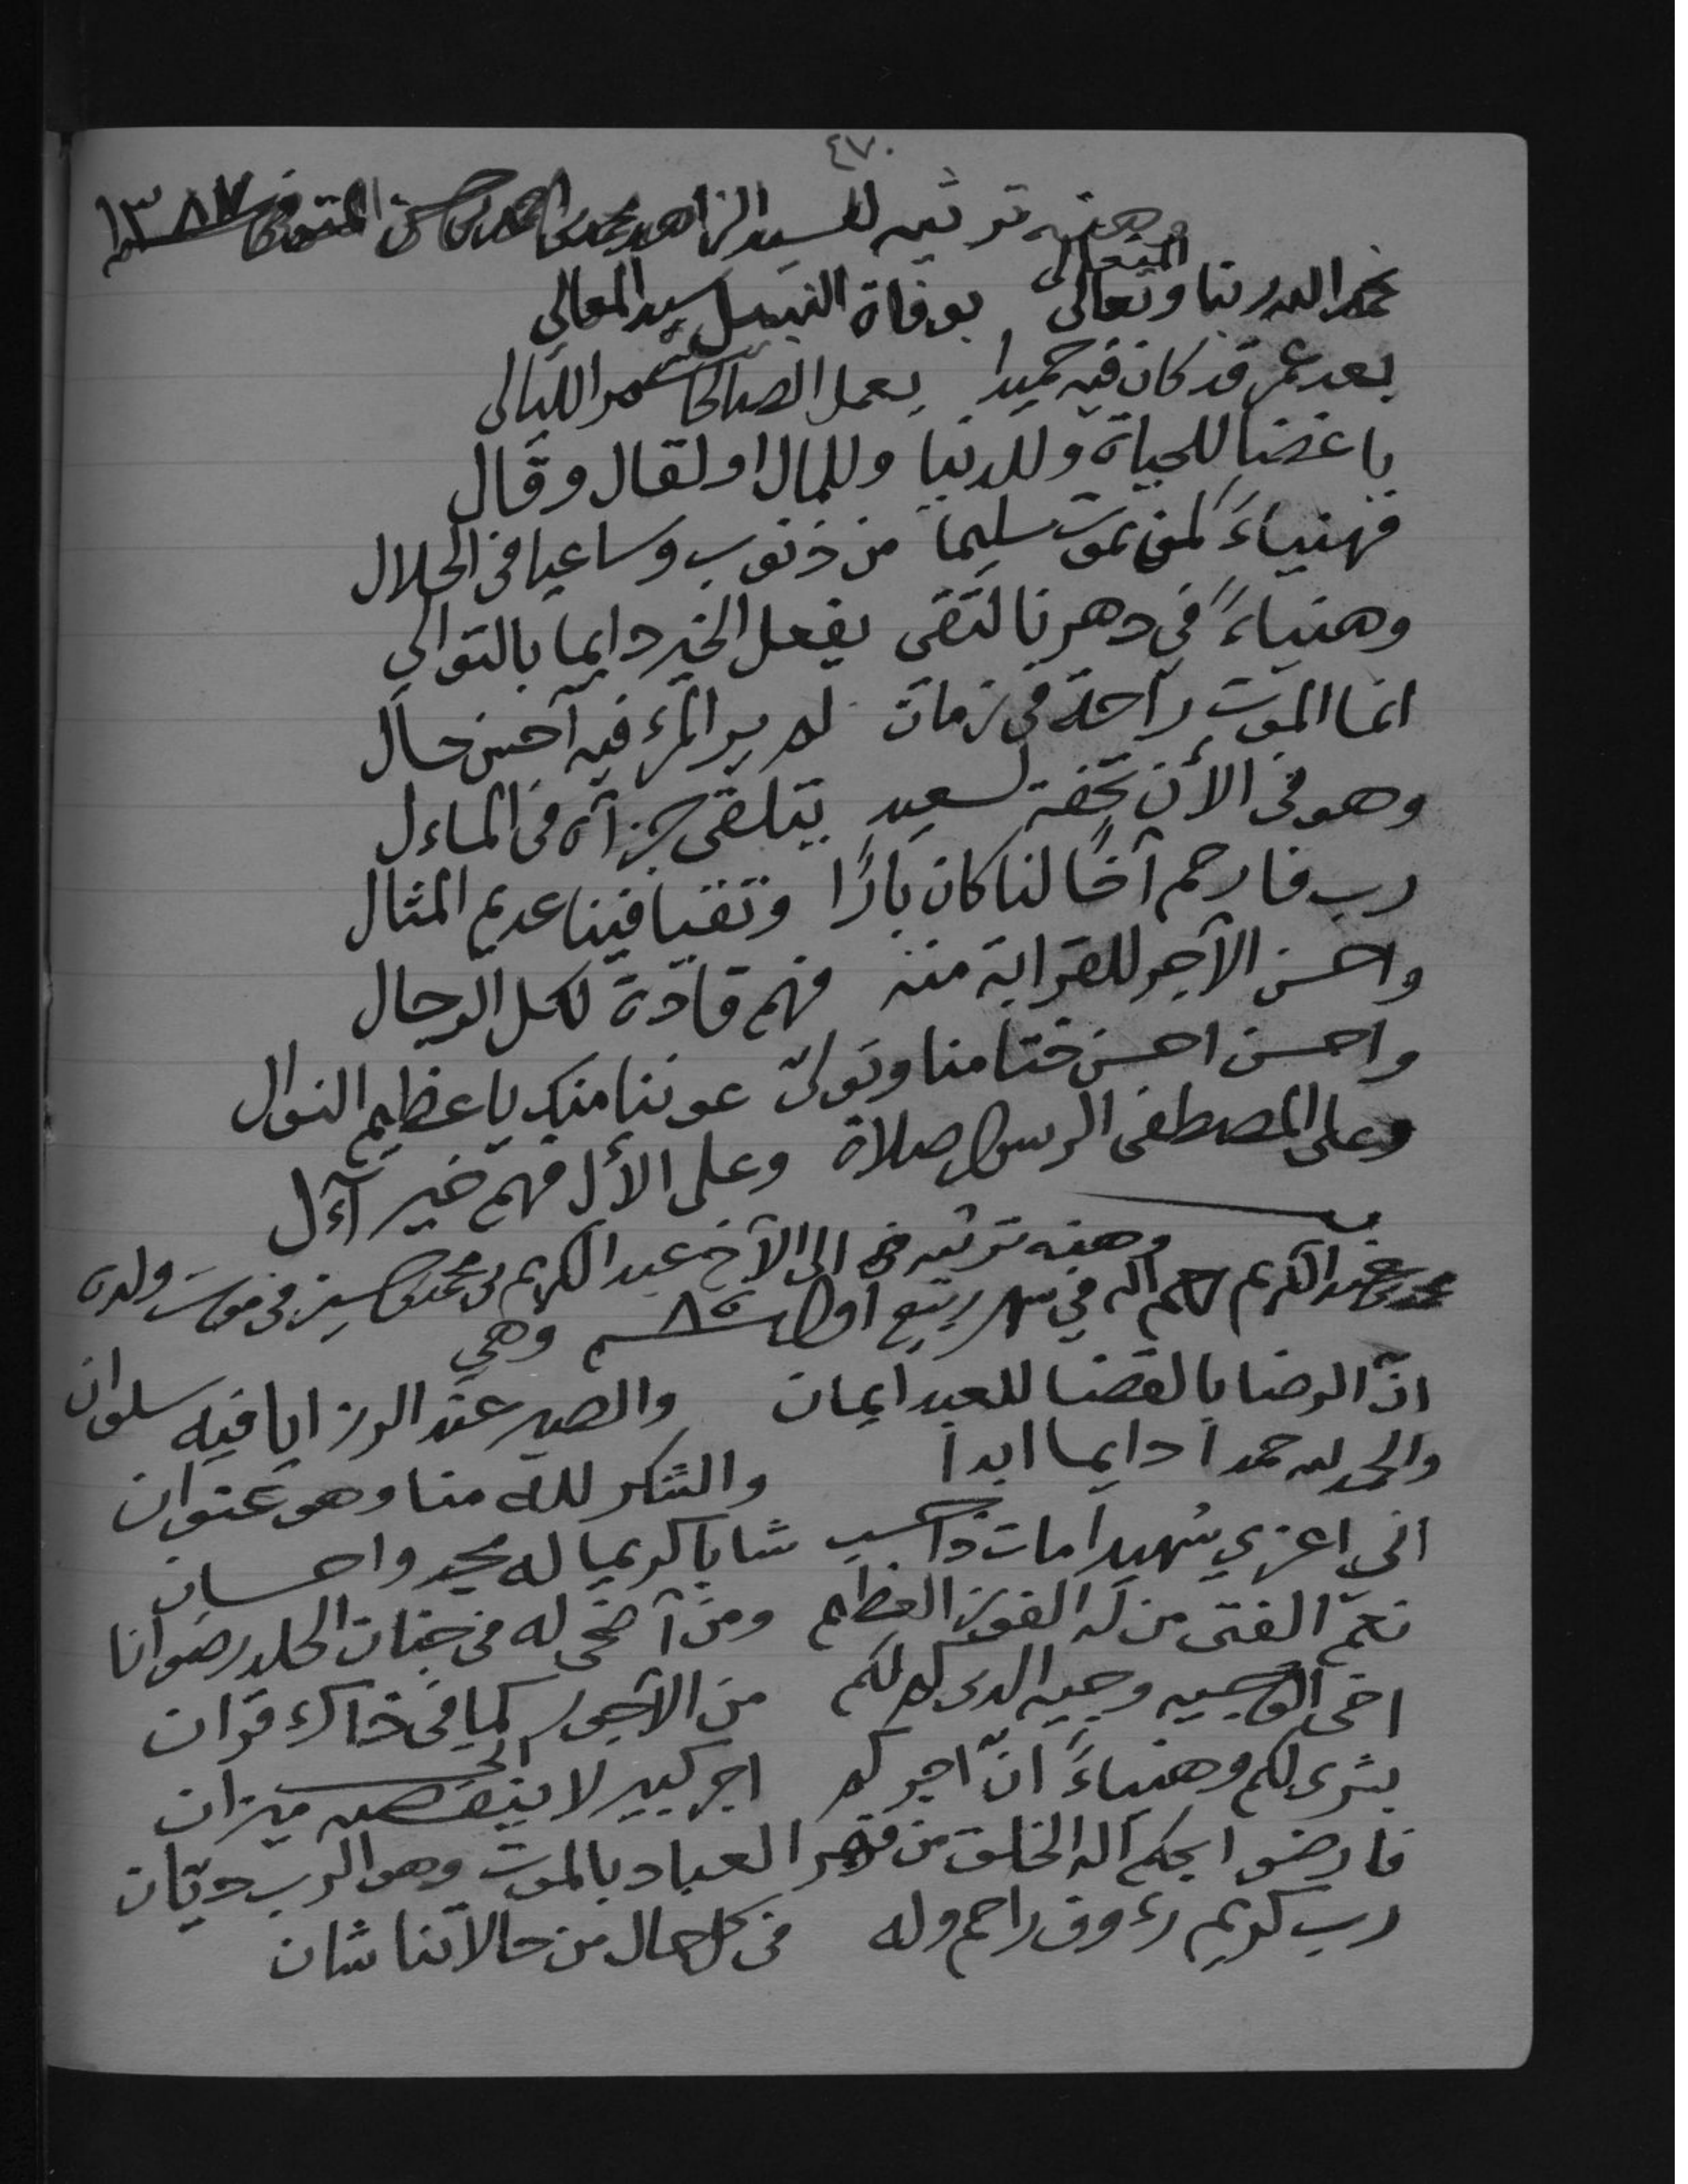 ٤٧٠
وهذه ترثيه للسيد الزاهد محمد بن احمد بن حسن المتوفى سنة ١٣٨٧
المتعالى
نحمد الله ربنا وتعالى بوفاة النبيل سيد المعالي
بعد عمر قد كان فيه حميدا بعمل الصالحات سهر الليالى
باغضا للحياة وللدنيا وللمال او لقال وقال
فهنياءً لمن يموت سليما من ذنوب وساعيا فى الحلال
وهنياءً فى دهرنا لتقى يفعل الخير دايما بالتوالي
انما الموت راحة فى زمان لم ير المرء فيه آحسن حال
وهو فى الأن تحفة لسعيد يتلقى جزآه فى الماءل
رب فارحم آخًا لنا كان بارًا وتقيا فينا عديم المثال
واحسن الآجر للقرابة منه فهم قادة لكل الرجال
واحسن احسن ختامنا وتولى عوننا منك يا عظيم النوال
وعلى المصطفى الرسول صلاة وعلى الأل فهم خير آءل
وهذه ترثيه الى الآخ عبد الكريم بن محمد بن حسين فى موت ولده
محمد بن عبد الكريم رحمهم الله في شهر ربيع اول سنة ٨٥ وهي
انّ الرضا بالقضا للعبد ايمان والصبر عند الرزايا فيه سلوان
والحمد لله حمدا دايما ابدا والشكر لله منا وهو عنوان
اني اعزي شهيدا مات ذا حسب شابا كريما له مجد واحسان
نعم الفتى من له الفوز العظيم ومن آضحى له فى جنات الخلد رضوانا
اخى الوجيه وجيه الدين كم لكم من الآجور كما فى ذاك قران
بشرى لكم وهنياءً انّ اجركم اجر كبير لا ينقصه ميزان
فارضوا بحكم اله الخلق من قهر العباد بالموت وهو الرب ديّان
رب كريم رءوف راحم وله فى كل حال من حالاتنا شان